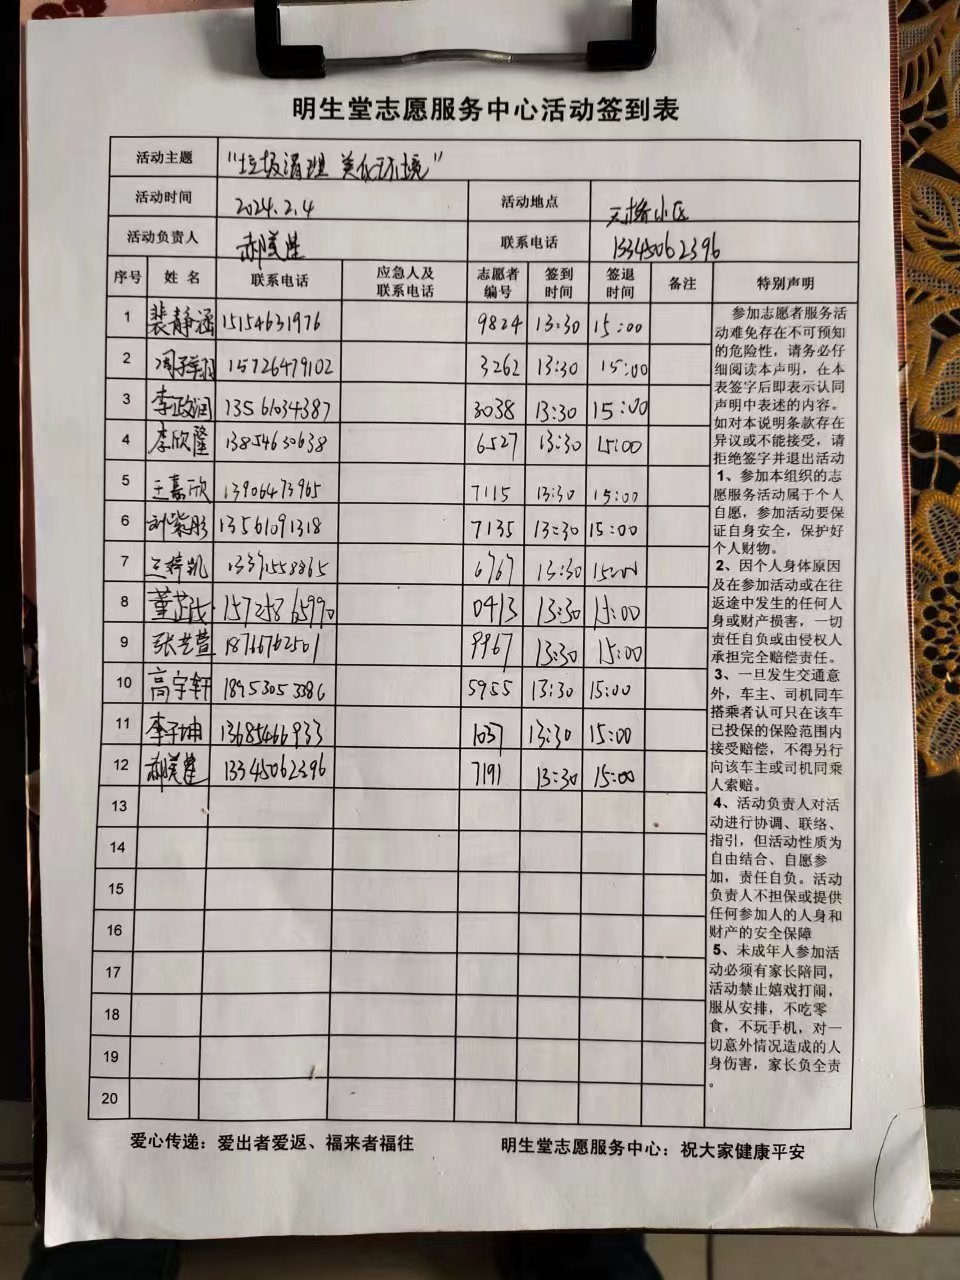 明生堂志愿服务中心活动签到表
活动主题 "垃圾清理 美化环境"
活动时间 2024.2.4 活动地点 天桥小区
活动负责人 郝美莲 联系电话 13345062396
序号 姓名 联系电话 应急人及联系电话 志愿者编号 签到时间 签退时间 备注 特别声明
1 裴静涵 15154631976 9824 13:30 15:00
2 15726479102 3262 13:30 15:00
3 李政润 13561034387 3038 13:30 15:00
4 李欣隆 13854630638 6527 13:30 15:00
5 王嘉欣 13906473965 7115 13:30 15:00
6 刘紫彤 13561091318 7135 13:30 15:00
7 13371558865 6767 13:30 15:00
8 15725865990 0413 13:30 15:00
9 张艺萱 18766762501 9967 13:30 15:00
10 高宇轩 18953053386 5955 13:30 15:00
11 李子坤 13685466933 1037 13:30 15:00
12 郝美莲 13345062396 7191 13:30 15:00
13
14
15
16
17
18
19
20
参加志愿者服务活
动难免存在不可预知
的危险性，请务必仔
细阅读本声明，在本
表签字后即表示认同
声明中表述的内容。
如对本说明条款存在
异议或不能接受，请
拒绝签字并退出活动
1、参加本组织的志
愿服务活动属于个人
自愿，参加活动要保
证自身安全，保护好
个人财物。
2、因个人身体原因
及在参加活动或在往
返途中发生的任何人
身或财产损害，一切
责任自负或由侵权人
承担完全赔偿责任。
3、一旦发生交通意
外，车主、司机同车
搭乘者认可只在该车
已投保的保险范围内
接受赔偿，不得另行
向该车主或司机同乘
人索赔。
4、活动负责人对活
动进行协调、联络、
指引，但活动性质为
自由结合、自愿参
加，责任自负。活动
负责人不担保或提供
任何参加人的人身和
财产的安全保障
5、未成年人参加活
动必须有家长陪同，
活动禁止嬉戏打闹，
服从安排，不吃零
食，不玩手机，对一
切意外情况造成的人
身伤害，家长负全责
。
爱心传递：爱出者爱返、福来者福往 明生堂志愿服务中心：祝大家健康平安